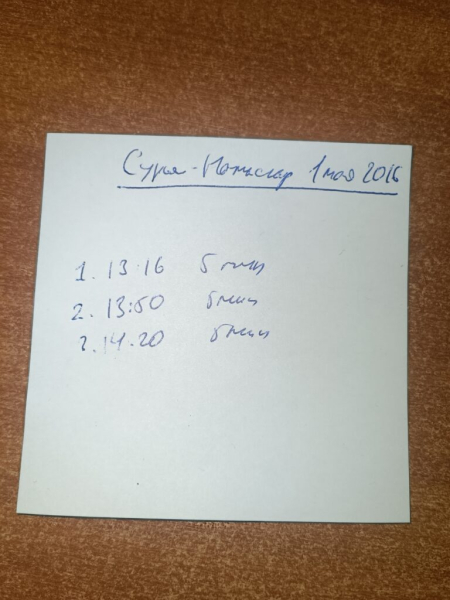 Сурья-Намаскар 1 мая 2016
1. 13:16 5 мин
2. 13:50 5 мин
3. 14.20 5 мин